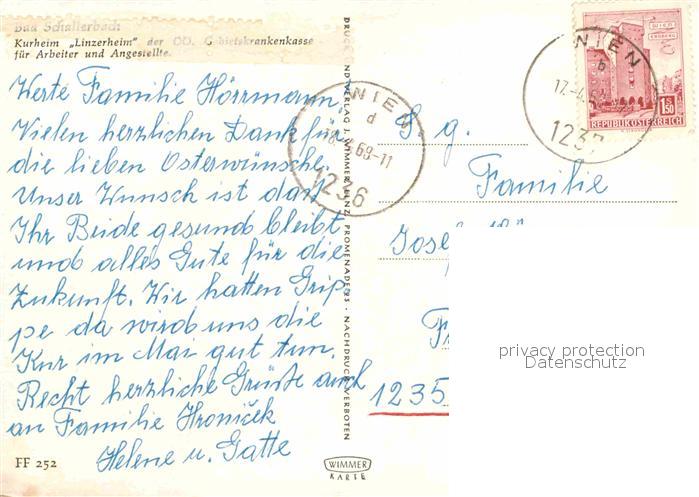 Bad Schallerbach
Kurheim „Linzerheim" der OÖ. Gebietskrankenkasse
für Arbeiter und Angestellte.
Werte Familie Hörrmann,
Vielen herzlichen Dank für
die lieben Osterwünsche.
Unser Wunsch ist daß
Ihr Beide gesund bleibt
und alles Gute für die
Zukunft. Wir hatten Grip-
pe da wird uns die
Kur im Mai gut tun.
Recht herzliche Grüße auch
an Familie Hroniček
Helene u. Gatte
FF 252
DRUCK UND VERLAG J. WIMMER, LINZ, PROMENADE 23 · NACHDRUCK VERBOTEN
WIMMER
KARTE
WIEN
d
68-11
1236
WIEN
b
17.-4.
WIEN
ERDBERG
S 1.50
REPUBLIK ÖSTERREICH
S. g.
Familie
Josef
1235
privacy protection
Datenschutz